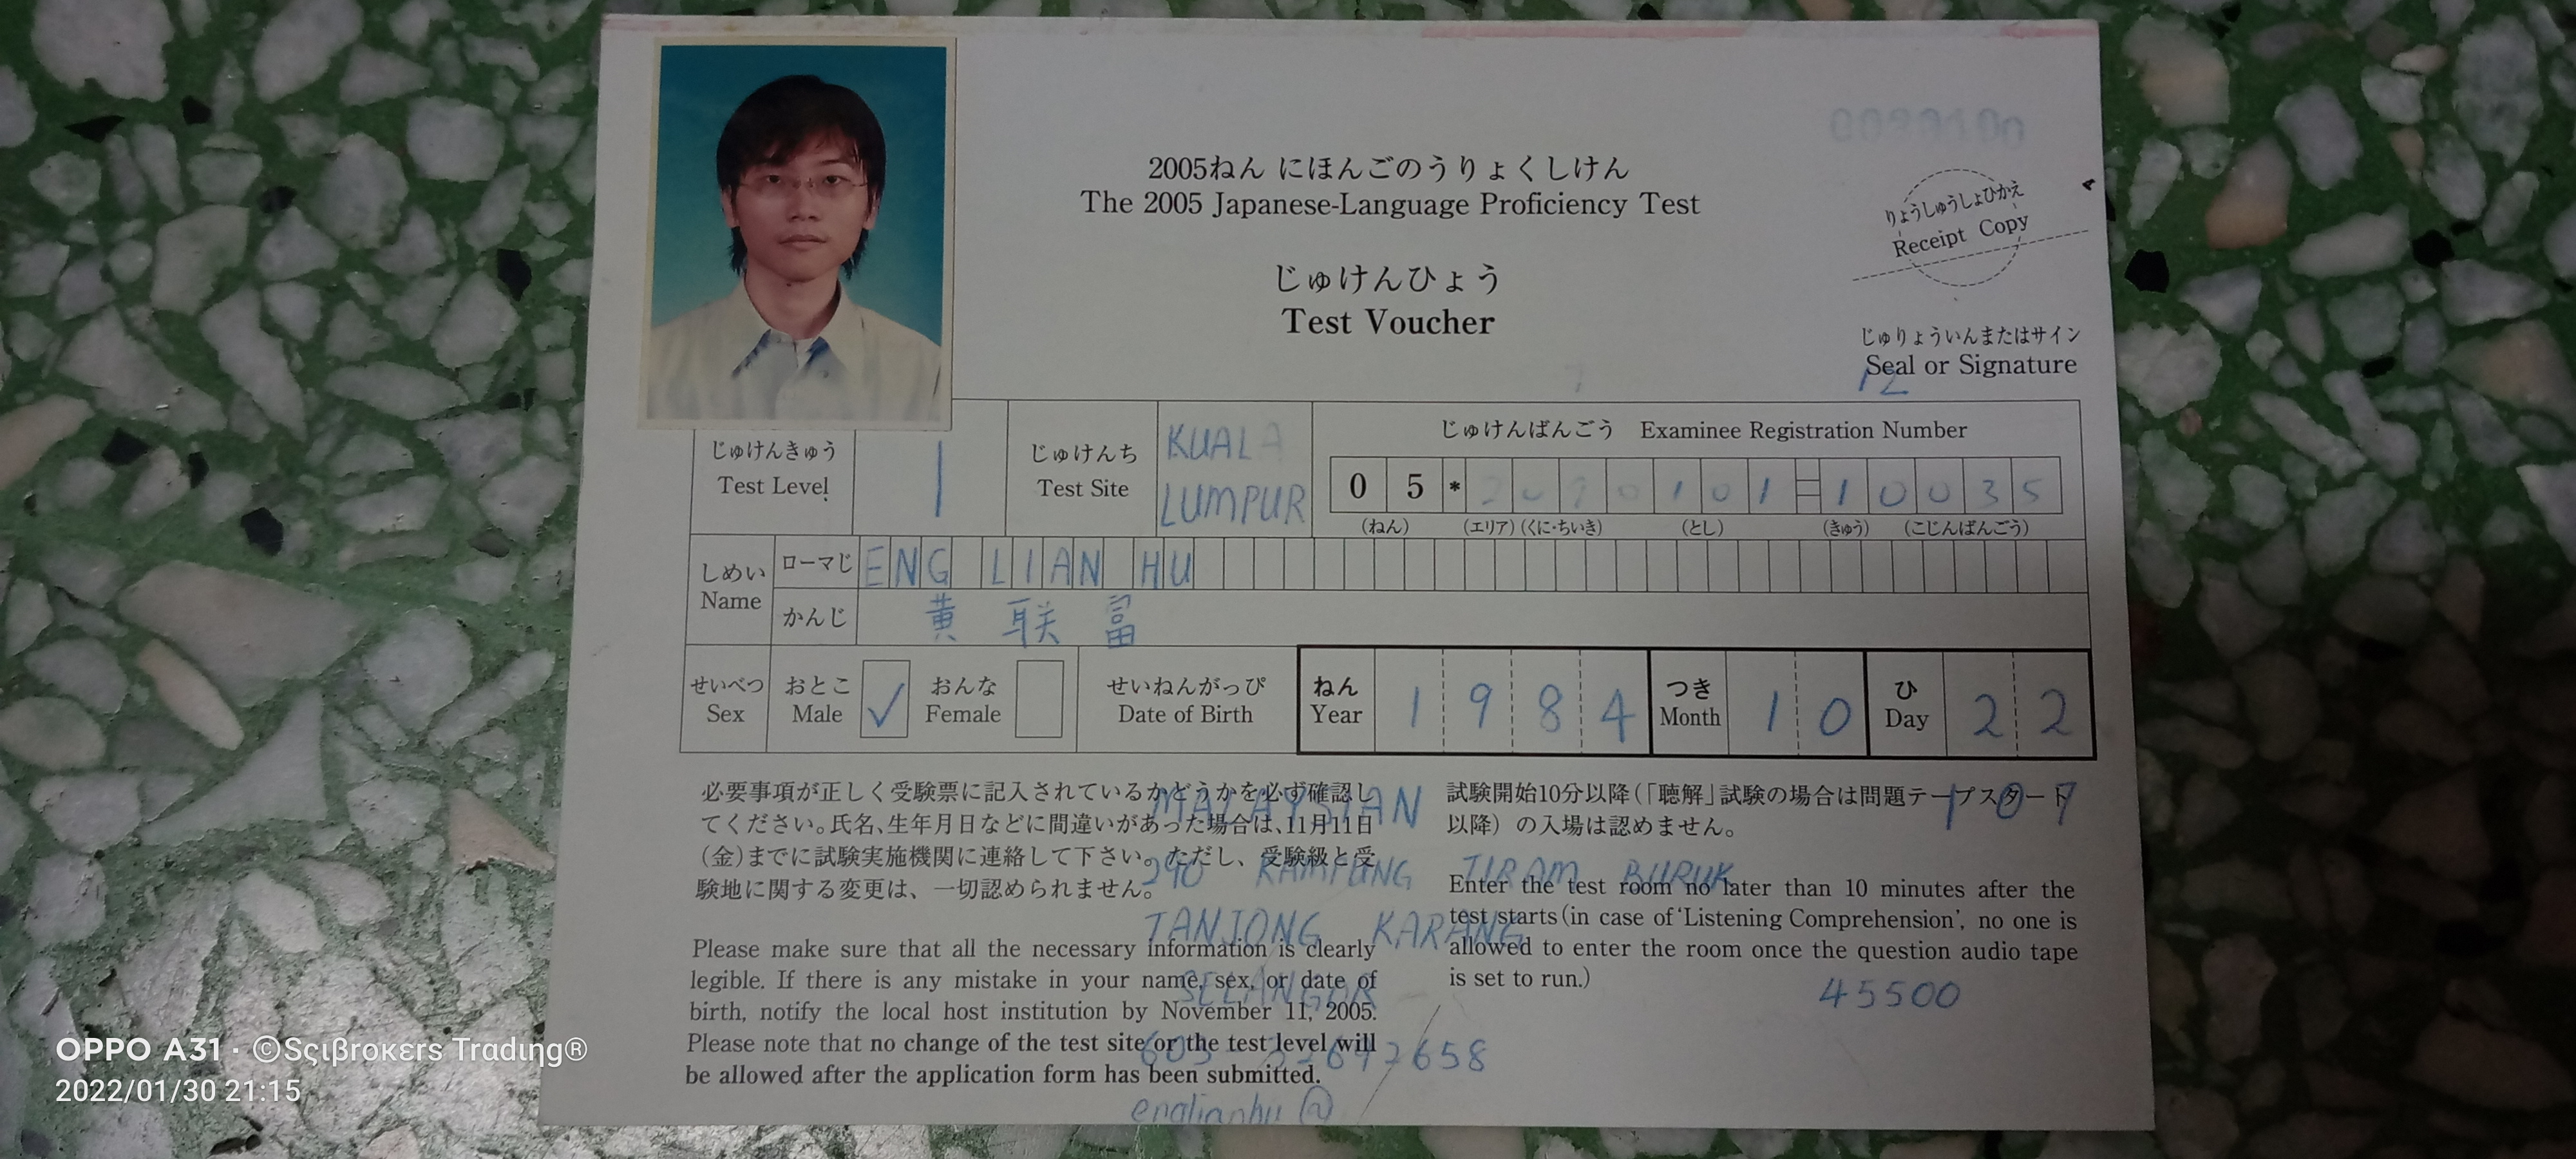 2005ねん にほんごのうりょくしけん
The 2005 Japanese-Language Proficiency Test
じゅけんひょう
Test Voucher
りょうしゅうしょひかえ
Receipt Copy
じゅりょういんまたはサイン
Seal or Signature
12
じゅけんきゅう
Test Level
1
じゅけんち
Test Site
KUALA
LUMPUR
じゅけんばんごう Examinee Registration Number
0 5 * 2 0 7 0 1 0 1 - 1 0 0 3 5
(ねん) (エリア) (くに・ちいき) (とし) (きゅう) (こじんばんごう)
しめい
Name
ローマじ
ENG LIAN HU
かんじ
黄 联 富
せいべつ
Sex
おとこ
Male
✓
おんな
Female
せいねんがっぴ
Date of Birth
ねん
Year
1 9 8 4
つき
Month
1 0
ひ
Day
2 2
必要事項が正しく受験票に記入されているかどうかを必ず確認し
てください。氏名、生年月日などに間違いがあった場合は、11月11日
(金)までに試験実施機関に連絡して下さい。ただし、受験級と受
験地に関する変更は、一切認められません。
Please make sure that all the necessary information is clearly
legible. If there is any mistake in your name, sex, or date of
birth, notify the local host institution by November 11, 2005.
Please note that no change of the test site or the test level will
be allowed after the application form has been submitted.
試験開始10分以降(「聴解」試験の場合は問題テープスタート
以降) の入場は認めません。
Enter the test room no later than 10 minutes after the
test starts(in case of 'Listening Comprehension', no one is
allowed to enter the room once the question audio tape
is set to run.)
MALAYSIAN
107
290 KAMPUNG TIRAM BURUK
TANJONG KARANG
SELANGOR
45500
englianhu @
OPPO A31 · ©Sςιβrοκεrs Trαdιηg®
2022/01/30 21:15